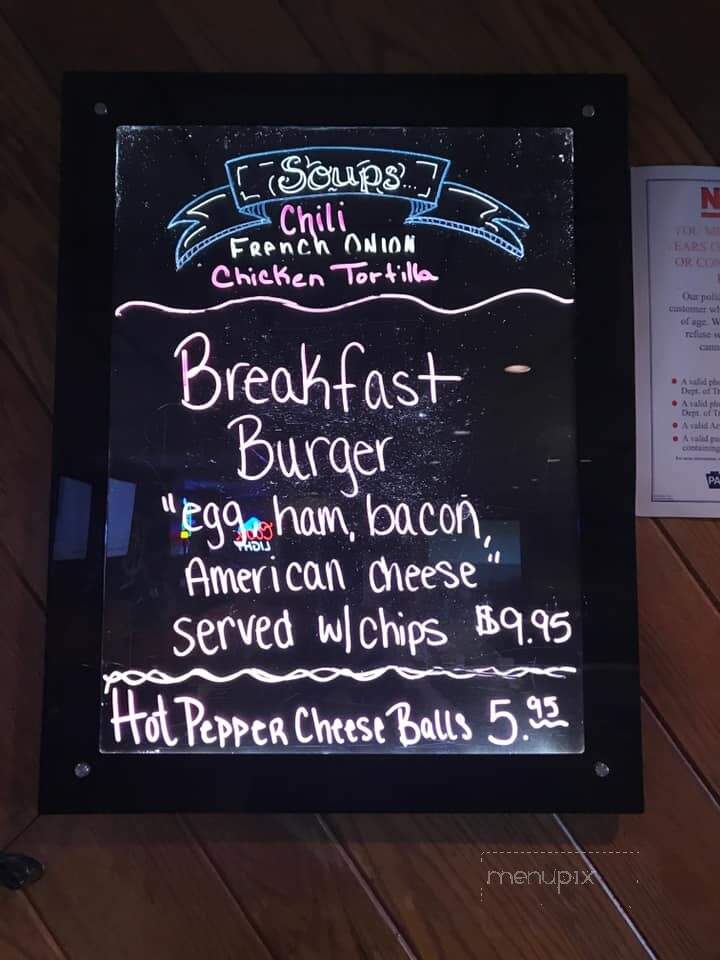 Soups
Chili
French Onion
Chicken Tortilla
Breakfast
Burger
"egg, ham, bacon,
American cheese"
served w/ chips $9.95
Hot Pepper Cheese Balls 5.95
LIGHT
N
OR
Our
customer
of age. W
refuse
A valid
Dept. of
A valid
Dept. of
A valid
A valid
containing
PA
menupix